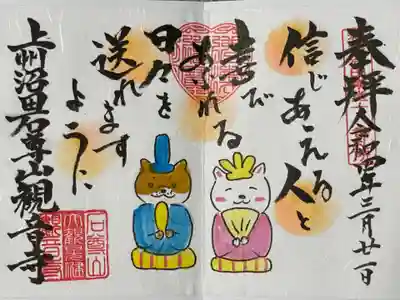 奉拝 令和四年三月廿一日
信じあえる人と
喜び
あふれる
日々を
送れます
ように
上州沼田石尊山觀音寺
石尊山